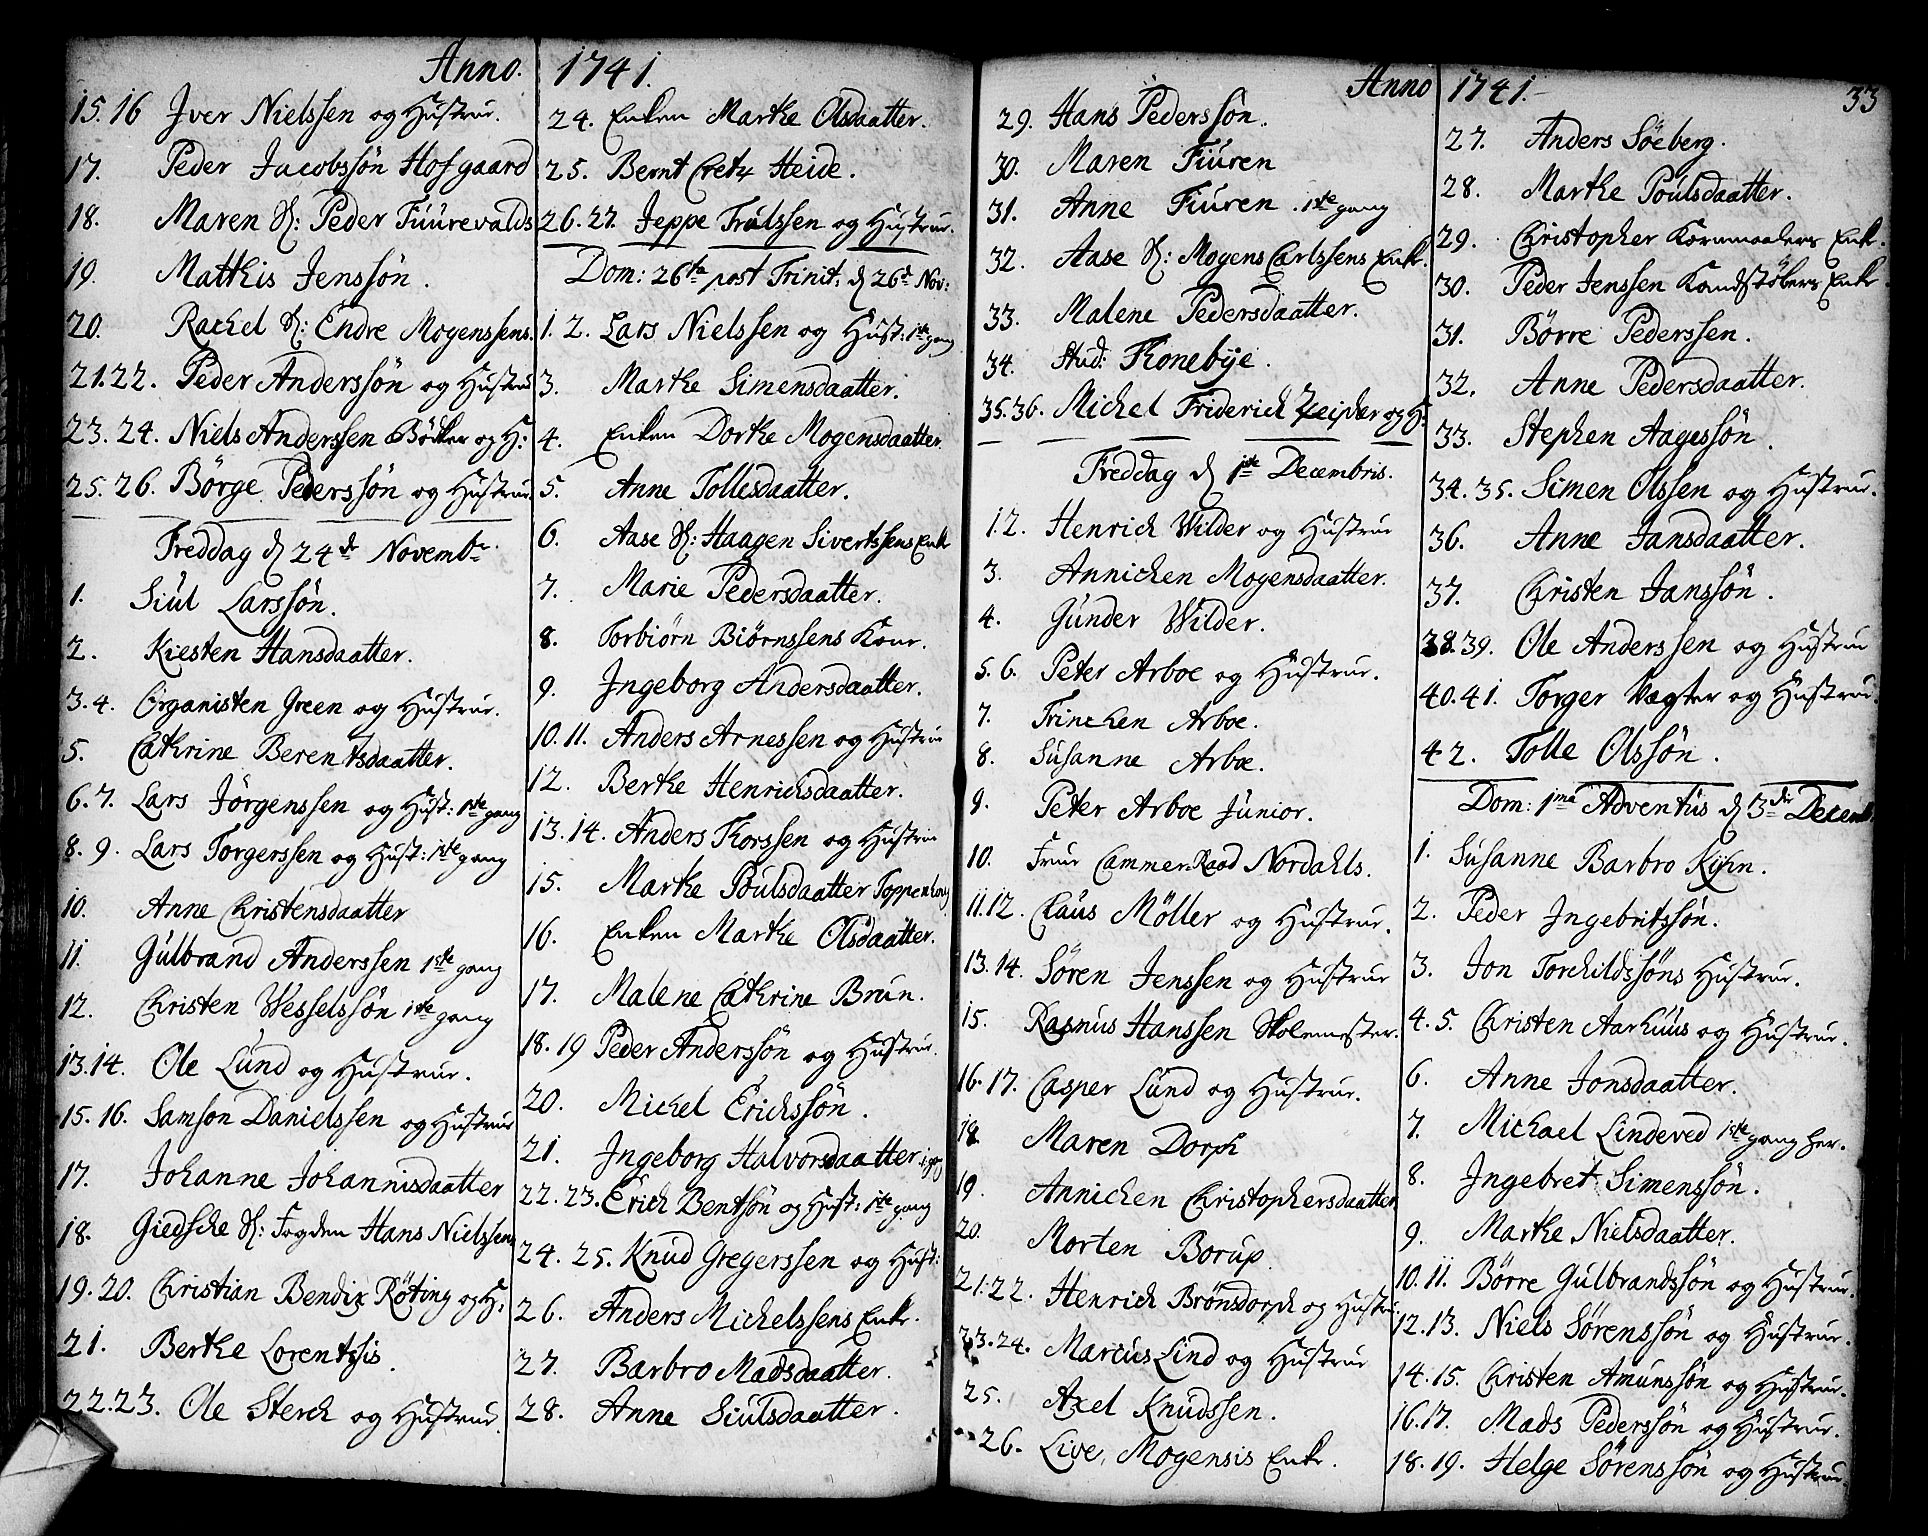 Anno. 1741.
15. 16 Jver Nielssen og Hustrue.
17. Peder Jacobssön Hofgaard
18. Maren S: Peder Fuurevalds
19. Mathis Jenssön.
20. Rachel S: Endre Mogenssens.
21. 22. Peder Anderssön og Hustrue
23. 24. Niels Anderssen Böcker og H:
25. 26. Börge Pederssön og Hustrue.
Freddag d 24de Novembr.
1. Siul Larssön.
2. Kiesten Hansdaatter.
3. 4. Organisten Green og Hustrue.
5. Cathrine Berentsdaatter.
6. 7. Lars Jörgenssen og Hust: 1ste gang
8. 9. Lars Torgerssen og Hust: 1ste gang
10. Anne Christensdaatter
11. Gulbrand Anderssen 1ste gang
12. Christen Wesselssön 1ste gang
13. 14. Ole Lund og Hustrue.
15. 16. Samson Danielssen og Hustrue
17. Johanne Johannisdaatter
18. Giedsche S: Fogden Hans Nielssens
19. 20. Christian Bendix Röting og H:
21. Berthe Lorentzis.
22. 23. Ole Sterch og Hustrue.
24. Enken Marthe Olsdaatter.
25. Bernt Cretz Heide.
26. 27. Jeppe Trulssen og Hustrue.
Dom: 26ta post Trinit: d 26d Nov:
1. 2. Lars Nielssen og Hust: 1ste gang
3. Marthe Simensdaatter.
4. Enken Dorthe Mogensdaatter.
5. Anne Tollesdaatter.
6. Aase S: Haagen Sivertssens Enke
7. Marie Pedersdaatter.
8. Torbiörn Biörnssens Kone.
9. Jngeborg Andersdaatter.
10. 11. Anders Arnessen og Hustrue
12. Berthe Henrichsdaatter.
13. 14. Anders Thorssen og Hustrue
15. Marthe Poulsdaatter
16. Enken Marthe Olsdaatter.
17. Malene Cathrine Brun.
18. 19 Peder Anderssön og Hustrue.
20. Michel Erichssön.
21. Jngeborg Halvorsdaatter
22. 23. Erich Bentsön og Hust: 1ste gang
24. 25. Knud Gregerssen og Hust:
26. Anders Michelssens Enke.
27. Barbro Madsdaatter.
28. Anne Siulsdaatter.
Anno 1741. 33
29. Hans Pederssön.
30. Maren Fiuren
31. Anne Fiuren. 1ste gang
32. Aase S: Mogens Carlssens Enke.
33. Malene Pedersdaatter.
34. Stud: Thonebye.
35. 36. Michel Friderich Zeisler og H:
Freddag d 1ste Decembris.
1. 2. Henrich Wilder og Hustrue
3. Annichen Mogensdaatter.
4. Gunder Wilder.
5. 6. Peter Arboe og Hustrue.
7. Trinchen Arboe.
8. Susanne Arboe.
9. Peter Arboe Junior.
10. Frue Cammer-Raad Nordahls.
11. 12. Claus Möller og Hustrue.
13. 14. Sören Jenssen og Hustrue
15. Rasmus Hanssen Skolemester.
16. 17. Casper Lund og Hustrue.
18 Maren Dorph
19. Annichen Christophersdaatter
20. Morten Borup
21. 22. Henrich Brönsdorph og Hustrue.
23. 24. Marcus Lind og Hustrue
25. Axel Knudssen.
26. Live, Mogensis Enke.
27. Anders Söeberg.
28. Marthe Poulsdaatter.
29. Christopher Kornmaalers Enke.
30. Peder Jenssen Kandstöbers Enke
31. Börre Pederssen.
32. Anne Pedersdaatter.
33. Stephen Aagessön.
34. 35. Simen Olssen og Hustrue.
36. Anne Jansdaatter.
37. Christen Janssön.
38. 39. Ole Anderssen og Hustrue
40. 41. Torger Vægter og Hustrue.
42. Tolle Olssön.
Dom: 1ma Adventus d 3die Decemb.
1. Susanne Barbro Kyhn.
2. Peder Jngebritssön.
3. Jon Torchildssöns Hustrue.
4. 5. Christen Aarhuus og Hustrue.
6. Anne Jonsdaatter.
7. Michael Lindeved 1ste gang her.
8. Jngebret Simenssön.
9. Marthe Nielsdaatter.
10. 11. Börre Gulbrandssön og Hustrue.
12. 13. Niels Sörenssön og Hustrue.
14. 15. Christen Amunssön og Hustrue.
16. 17. Mads Pederssön og Hustrue.
18. 19. Helge Sörenssön og Hustrue.